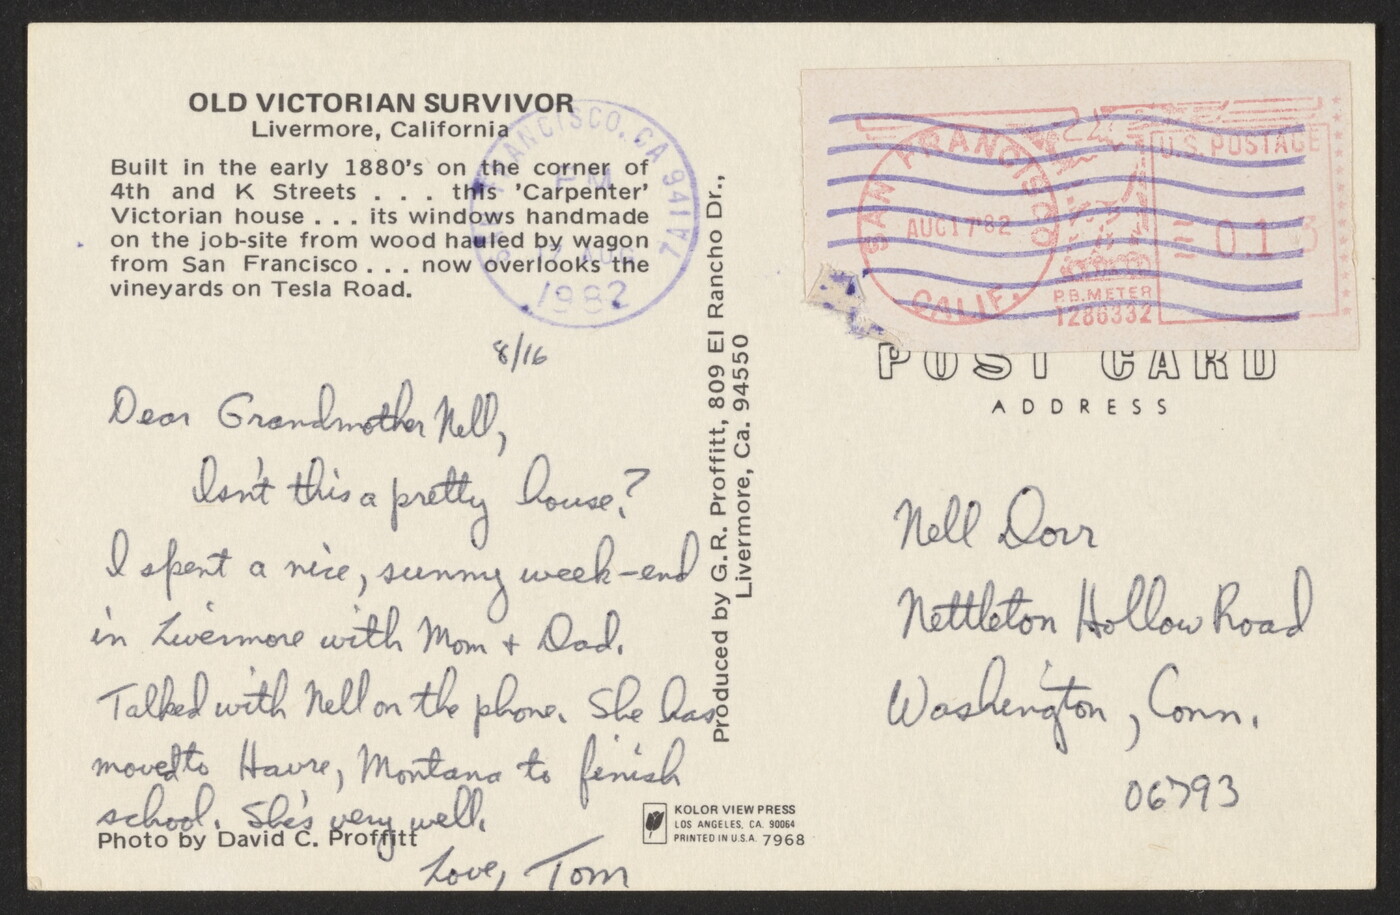 OLD VICTORIAN SURVIVOR
Livermore, California
Built in the early 1880's on the corner of
4th and K Streets . . . this 'Carpenter'
Victorian house . . . its windows handmade
on the job-site from wood hauled by wagon
from San Francisco . . . now overlooks the
vineyards on Tesla Road.
FRANCISCO, CA 941
PM
17 AUG
1982
8/16
Dear Grandmother Nell,
Isn't this a pretty house?
I spent a nice, sunny week-end
in Livermore with Mom + Dad.
Talked with Nell on the phone. She has
moved to Havre, Montana to finish
school. She's very well.
Love, Tom
Photo by David C. Proffitt
Produced by G.R. Proffitt, 809 El Rancho Dr.,
Livermore, Ca. 94550
KOLOR VIEW PRESS
LOS ANGELES, CA. 90064
PRINTED IN U.S.A. 7968
SAN FRANCISCO
AUG 17 '82
CALIF.
U.S. POSTAGE
013
P.B. METER
1286332
POST CARD
ADDRESS
Nell Dorr
Nettleton Hollow Road
Washington, Conn.
06793